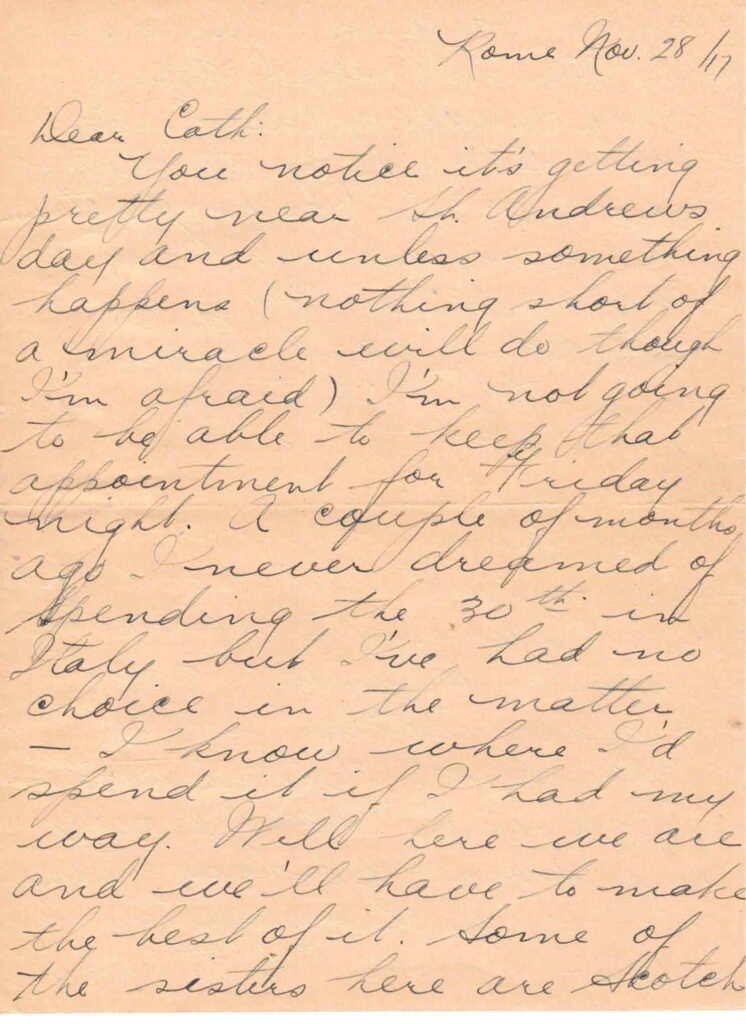 Rome Nov. 28/17
Dear Cath:
You notice it's getting
pretty near St. Andrews
day and unless something
happens (nothing short of
a miracle will do though
I'm afraid) I'm not going
to be able to keep that
appointment for Friday
night. A couple of months
ago I never dreamed of
spending the 30th in
Italy but I've had no
choice in the matter
— I know where I'd
spend it if I had my
way. Well here we are
and we'll have to make
the best of it. Some of
the sisters here are Scotch